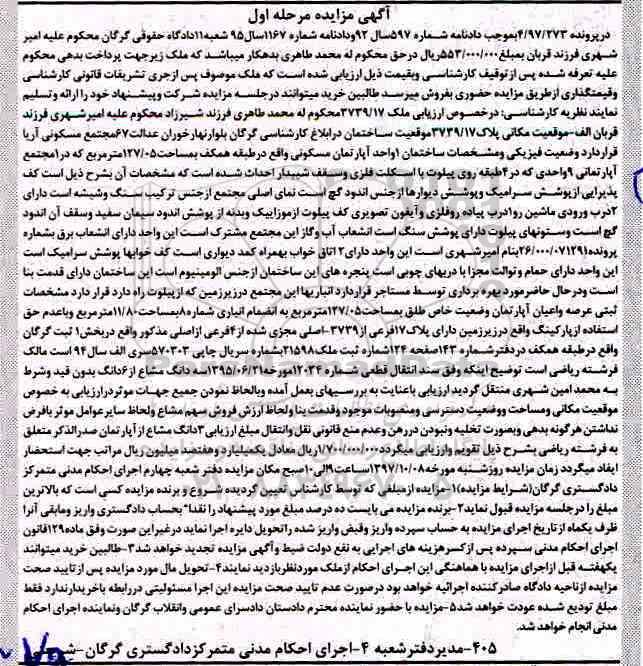 آگهی مزایده مرحله اول
درپرونده ۴/۹۷/۲۷۳بموجب دادنامه شماره ۵۹۷سال ۹۲ودادنامه شماره ۱۱۶۷سال۹۵ شعبه۱۱دادگاه حقوقی گرگان محکوم علیه امیر
شهری فرزند قربان بمبلغ۵۵۳/۰۰۰/۰۰۰ریال درحق محکوم له محمد طاهری بدهکار میباشد که ملک زیرجهت پرداخت بدهی محکوم
علیه تعرفه شده پس ازتوقیف کارشناسی وبقیمت ذیل ارزیابی شده است که ملک موصوف پس ازجری تشریفات قانونی کارشناسی
وقیمتگذاری ازطریق مزایده حضوری بفروش میرسد طالبین خرید میتوانند درجلسه مزایده شرکت وپیشنهاد خود را ارائه وتسلیم
نمایند نظریه کارشناسی: درخصوص ارزیابی ملک ۳۷۳۹/۱۷محکوم له محمد طاهری فرزند شیرزاد محکوم علیه امیرشهری فرزند
قربان الف-موقعیت مکانی پلاک۳۷۳۹/۱۷موقعیت ساختمان درابلاغ کارشناسی گرگان بلوارنهارخوران عدالت۶۷مجتمع مسکونی آریا
قراردارد وضعیت فیزیکی ومشخصات ساختمان ۱واحد آپارتمان مسکونی واقع درطبقه همکف بمساحت۱۲۷/۰۵مترمربع که در۱مجتمع
آپارتمانی ۹واحدی که در۴طبقه روی پیلوت با اسکلت فلزی وسقف شیبدار احداث شده است که مشخصات آن بشرح ذیل است کف
پذیرایی ازپوشش سرامیک وپوشش دیوارها ازجنس اندود گچ است نمای اصلی مجتمع ازجنس ترکیب سنگ وشیشه است دارای
۲درب ورودی ماشین رو۱درب پیاده روفلزی وآیفون تصویری کف پیلوت ازموزاییک وبدنه از پوشش اندود سیمان سفید وسقف آن اندود
گچ است وستونهای پیلوت دارای پوشش سنگ است انشعاب آب وگاز این مجتمع مشترک است این واحد دارای انشعاب برق بشماره
پرونده(۲۶/۰۰۰/۰۷۱۲۹بنام امیرشهری است این واحد دارای۲اتاق خواب بهمراه کمد دیواری است کف خوابها پوشش سرامیک است
این واحد دارای حمام وتوالت مجزا با دربهای چوبی است پنجره های این ساختمان ازجنس الومینیوم است این ساختمان دارای قدمت بنا
است ودرحال حاضرمورد بهره برداری توسط مستاجر قراردارد انباریها این مجتمع درزیرزمین که ازپیلوت راه دارد قرار دارد مشخصات
ثبتی عرصه واعیان آپارتمان وضعیت خاص طلق بمساحت۱۲۷/۰۵مترمربع به انضمام انباری شماره۸بمساحت۱۱/۸۰مترمربع وباعدم حق
استفاده ازپارکینگ واقع درزیرزمین دارای پلاک۱۷فرعی از۳۷۳۹-اصلی مجزی شده از۴فرعی ازاصلی مذکور واقع دربخش۱ ثبت گرگان
واقع درطبقه همکف دردفترشماره ۱۴۳صفحه ۱۲۴شماره ثبت ملک۲۱۵۹۸بشماره سریال چاپی ۵۷۰۳۰۳سری الف سال۹۴ است مالک
فرشته ریاضی است توضیح اینکه وفق سند انتقال قطعی شماره ۱۲۰۳۴مورخه۱۳۹۵/۰۶/۲۱سه دانگ مشاع از۶دانگ بدون قید وشرط
به محمد امین شهری منتقل گردید ارزیابی باعنایت به بررسیهای بعمل آمده وبالحاظ نمودن جمیع جهات موثردرارزیابی به خصوص
موقعیت مکانی ومساحت ووضعیت دسترسی ومنصوبات موجود وقدمت بنا ولحاظ ارزش فروش سهم مشاع ولحاظ سایرعوامل موثر بافرض
نداشتن هرگونه بدهی وبصورت تخلیه ونبودن دررهن وعدم منع قانونی نقل وانتقال مبلغ ارزیابی ۳دانگ مشاع از آپارتمان صدرالذکر متعلق
به فرشته ریاضی بشرح ذیل تقویم وارزیابی میگردد۱/۷۰۰/۰۰۰/۰۰۰ریال معادل یکمیلیارد وهفتصد میلیون ریال مراتب جهت استحضار
ایفاد میگردد زمان مزایده روزشنبه مورخه۱۳۹۷/۱۰/۰۸ساعت۹الی۱۰صبح مکان مزایده دفتر شعبه چهارم اجرای احکام مدنی متمرکز
دادگستری گرگان(شرایط مزایده)۱-مزایده ازمبلغی که توسط کارشناس تعیین گردیده شروع و برنده مزایده کسی است که بالاترین
مبلغ را درجلسه مزایده قبول نماید۲-برنده مزایده می بایست ده درصد مبلغ مورد پیشنهاد را نقدا"بحساب دادگستری واریز ومابقی آنرا
ظرف یکماه ازتاریخ اجرای مزایده به حساب سپرده واریز وقبض واریز شده راتحویل دایره اجرا نماید درغیراین صورت وفق ماده۱۲۹قانون
اجرای احکام مدنی سپرده پس ازکسرهزینه های اجرایی به نفع دولت ضبط وآگهی مزایده تجدید خواهد شد۳-طالبین خرید میتوانند
یکهفته قبل ازاجرای مزایده با هماهنگی این اجرای احکام ازملک موردنظربازدید نمایند۴-تحویل مال مورد مزایده پس ازتایید صحت
مزایده ازناحیه دادگاه صادرکننده اجرائیه خواهد بود درصورت عدم تایید صحت مزایده این اجرا مسئولیتی دررابطه باخریدارندارد فقط
مبلغ تودیع شده عودت خواهد شد۵-مزایده با حضور نماینده محترم دادستان دادسرای عمومی وانقلاب گرگان ونماینده اجرای احکام
مدنی انجام خواهد شد.
۴۰۵-مدیردفترشعبه ۴-اجرای احکام مدنی متمرکزدادگستری گرگان-